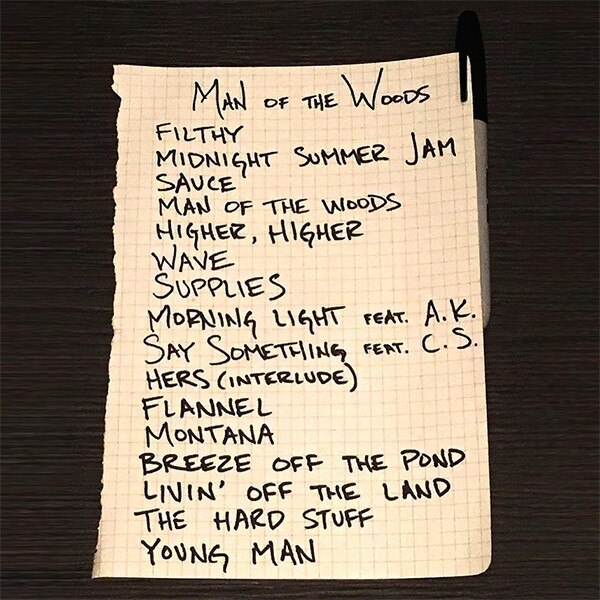 MAN OF THE WOODS
FILTHY
MIDNIGHT SUMMER JAM
SAUCE
MAN OF THE WOODS
HIGHER, HIGHER
WAVE
SUPPLIES
MORNING LIGHT FEAT. A.K.
SAY SOMETHING FEAT. C.S.
HERS (INTERLUDE)
FLANNEL
MONTANA
BREEZE OFF THE POND
LIVIN' OFF THE LAND
THE HARD STUFF
YOUNG MAN